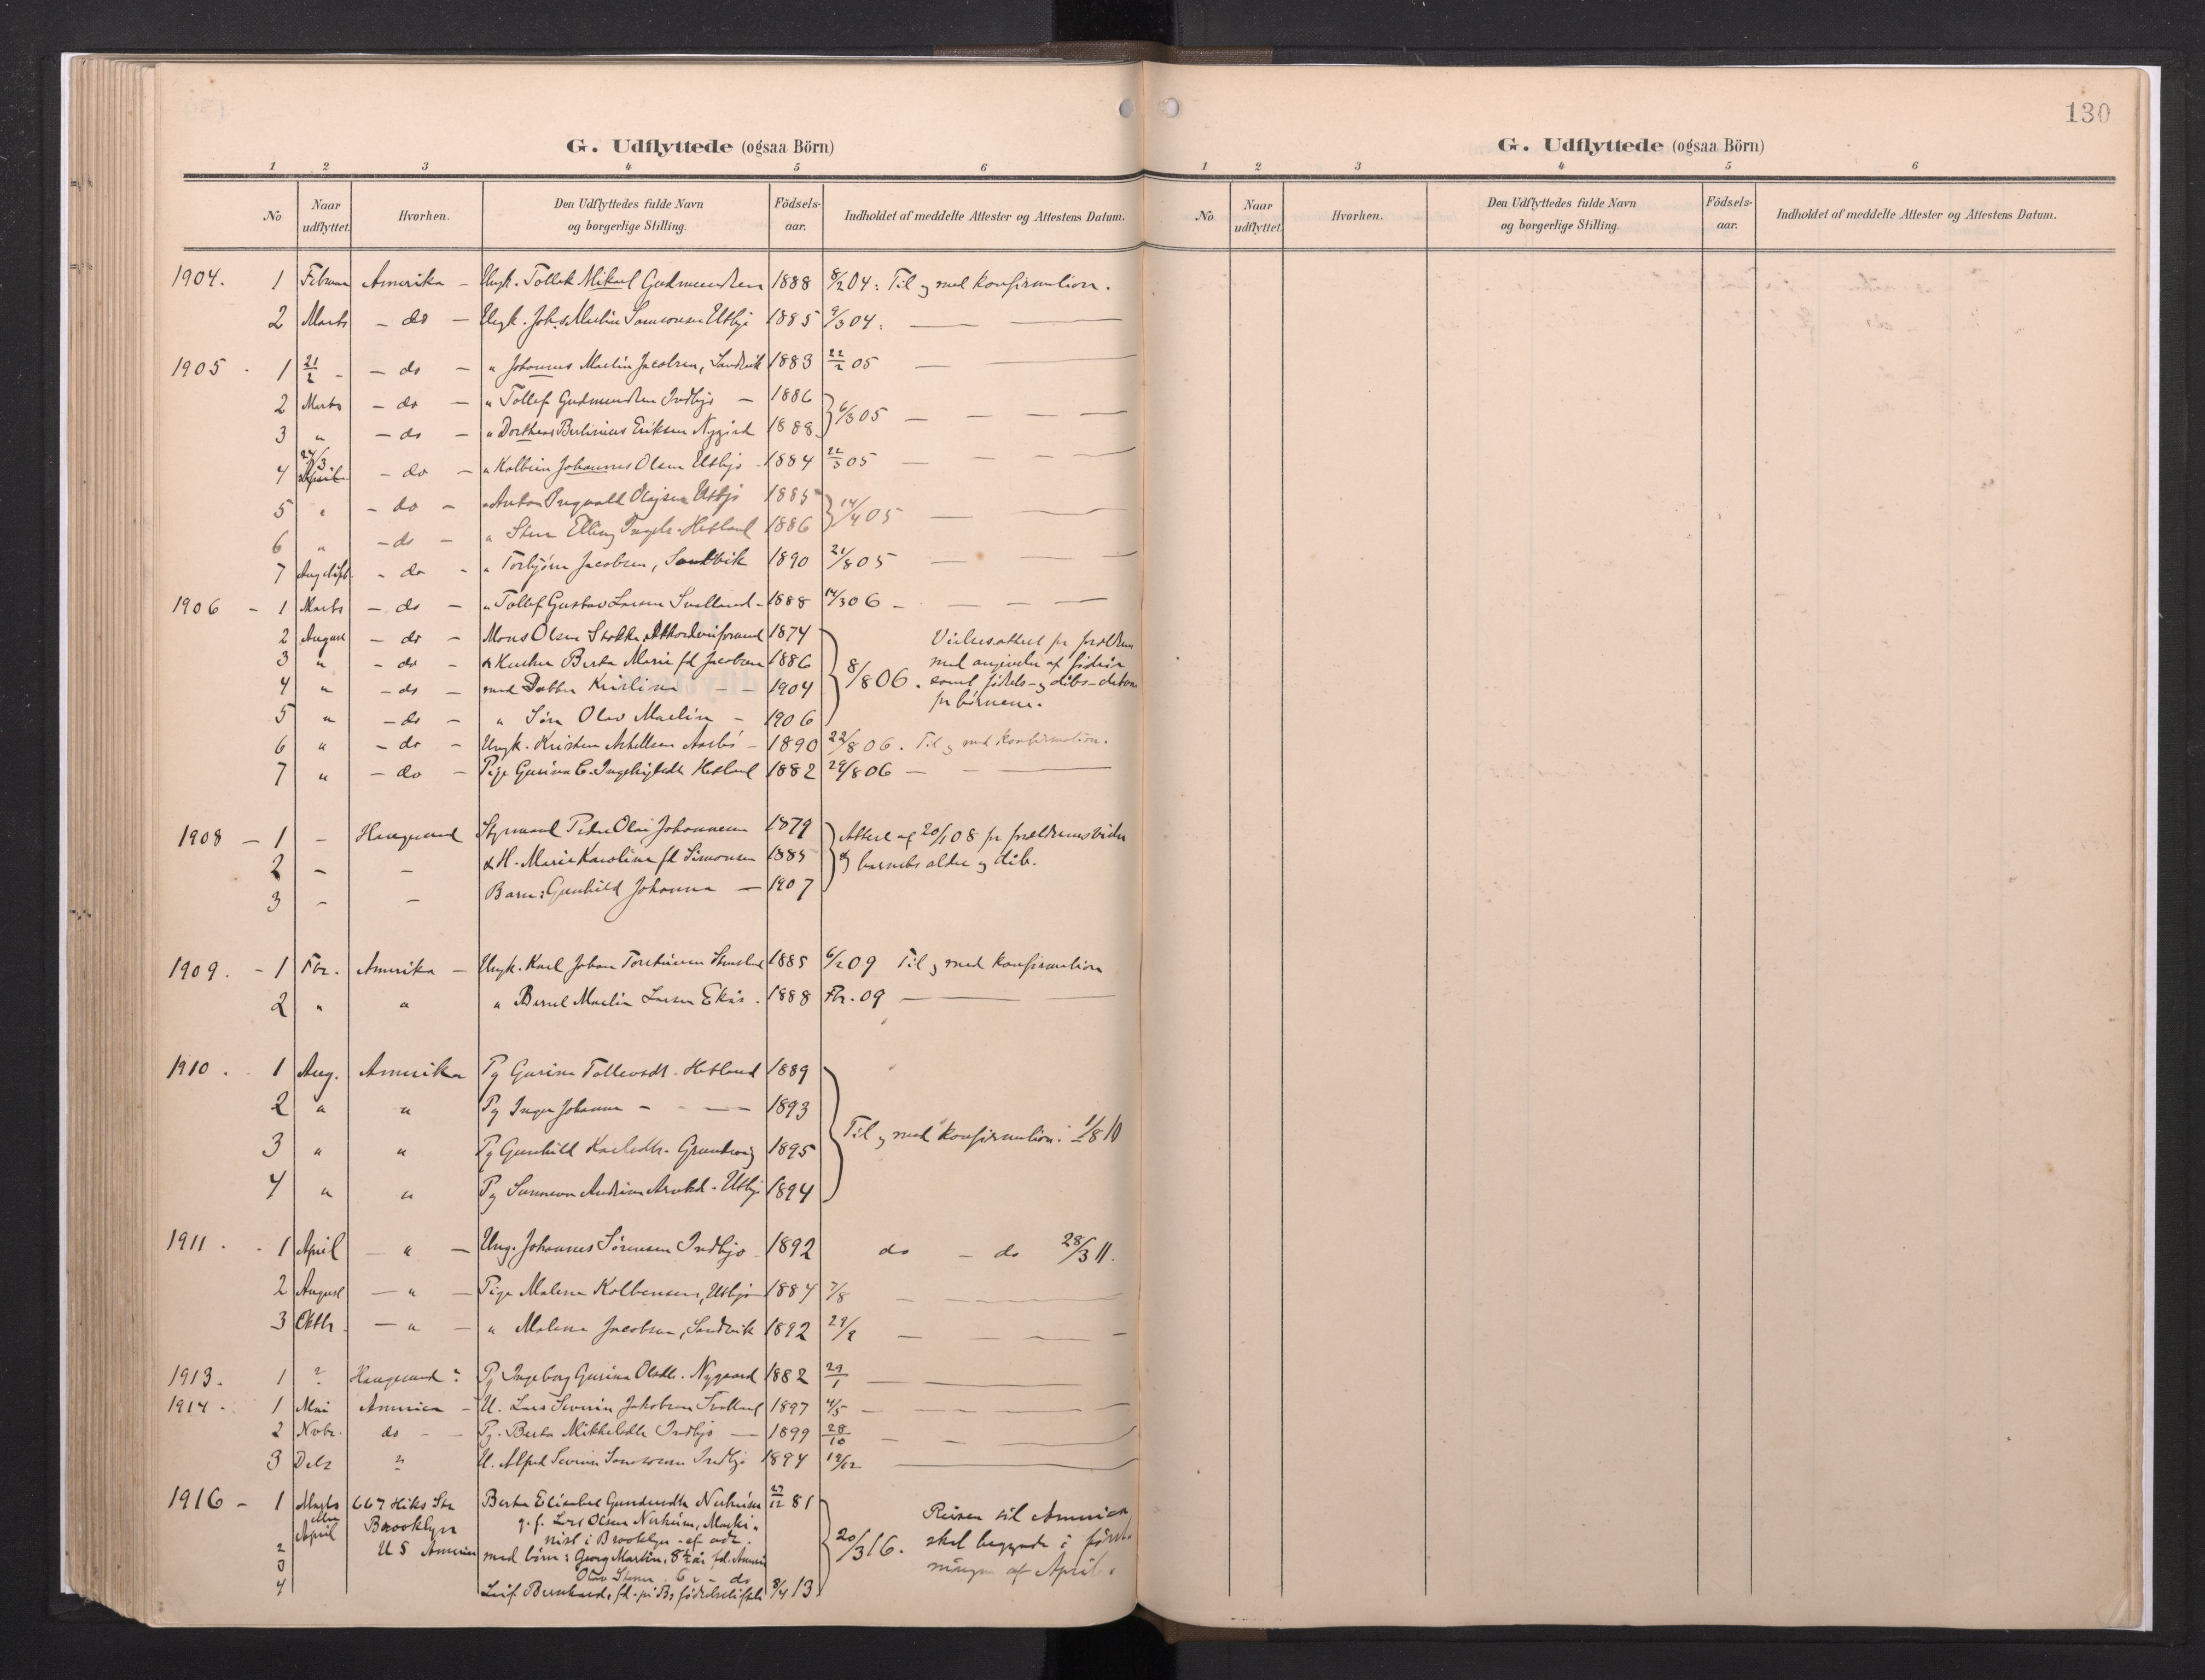 130
G. Udflyttede (ogsaa Börn)
1 2 3 4 5 6
No Naar udflyttet. Hvorhen. Den Udflyttedes fulde Navn og borgerlige Stilling. Födsels-aar. Indholdet af meddelte Attester og Attestens Datum.
1904. 1 Februar Amerika - Ungk. Tollak Mikael Gudmundsen 1888 8/2 04: Til og med konfirmation.
2 Marts - do - Ungk. Johs Martin Samsonsen Utbjo 1885 9/3 04:
1905 - 1 21/2 - - do - " Johannes Martin Jacobsen, Sandvik 1883 22/2 05
2 Marts - do - " Tollef Gudmundsen Indbjo - 1886 6/3 05
3 " - do - " Dortheus Berlinius Eriksen Nygård 1888
4 27/3 - do - " Kolbein Johannes Olsen Utbjo 1884 22/3 05
5 " - do - " Anton Ingvald Utbjo 1885 14/4 05
6 " - do - " Elling Hetland 1886
7 - do - " Torbjörn Jacobsen, Sandvik 1890 21/8 05
1906 - 1 Marts - do - " Tollef Gustav Larsen Svelland - 1888 14/3 06 -
2 August - do - Mons Olsen Stokka 1874 8/8 06. Vielsesattest for forældrene
3 " - do - & Hustru Berta Marie fd Jacobsen 1886 med angivelse af födeår
4 " - do - med Datter Kristine - - 1904 samt födsels- og dåbs-datum
5 " - do - " Sön Olav Martin - 1906 for börnene.
6 " - do - Ungk. Kristen Aslaksen - 1890 22/8 06. Til og med konfirmation.
7 " - do - Pige Gurina Hetland 1882 29/8 06 -
1908 - 1 - Haugesund Styrmand Peder Olai Johannesen 1879 Attest af 20/1 08 for forældrenes vielse
2 - - & H. Marie Karoline fd Simonsen 1885 og barnets alder og dåb.
3 - - Barn: Gunhild Johanna - 1907
1909. - 1 Fbr. Amerika - Ungk. Karl Johan 1885 6/2 09 Til og med konfirmation
2 " " " Martin Larsen Ekås. 1888 Fbr. 09
1910. 1 Aug. Amerika Pg Gurine Tollevsdt. Hetland 1889
2 " " Pg Inger Johanne - - - 1893 Til og med konfirmation: 1/8 10
3 " " Pg Gunhild Karlsdtr. 1895
4 " " Pg Sunneva Andrine Utbjo 1894
1911. 1 April - " - Ung. Johannes Sörensen Indbjo 1892 do - do 28/3 11.
2 August - " - Pige Malene Kolbensen, Utbjo 1884 7/8
3 Oktb - " - " Malene Jacobsen, Sandvik 1892 29/9
1913. 1 ? Haugesund ? Pg Ingeborg Gurina Olsdtr. Nygaard 1882 29/1
1914. 1 Mai America - U. Lars Severin Jakobsen Svelland 1897 4/5
2 Nvbr. do - - Pg. Berta Mikkelsdtr Indbjo - 1899 28/10
3 Dcbr " U. Alfred Severin Samsonsen Indbjo 1894 12/12
1916 - 1 Marts 667 Hiks Str Berta Elisabet Gundersdtr Nerheim 27/12 81
eller
April Brooklyn g. f. Lars Olsen Nerheim, Maski-
2 U S America nist i Brooklyn
3 med börn: Georg Martin, 8½ år fd. Amerika 20/3 16. Reisen til America
Olav 6 " - do skal begynde i første
4 Leif Bernhard, fd. på 8/4 13 af April.
G. Udflyttede (ogsaa Börn)
1 2 3 4 5 6
No. Naar udflyttet. Hvorhen. Den Udflyttedes fulde Navn og borgerlige Stilling. Födsels-aar. Indholdet af meddelte Attester og Attestens Datum.